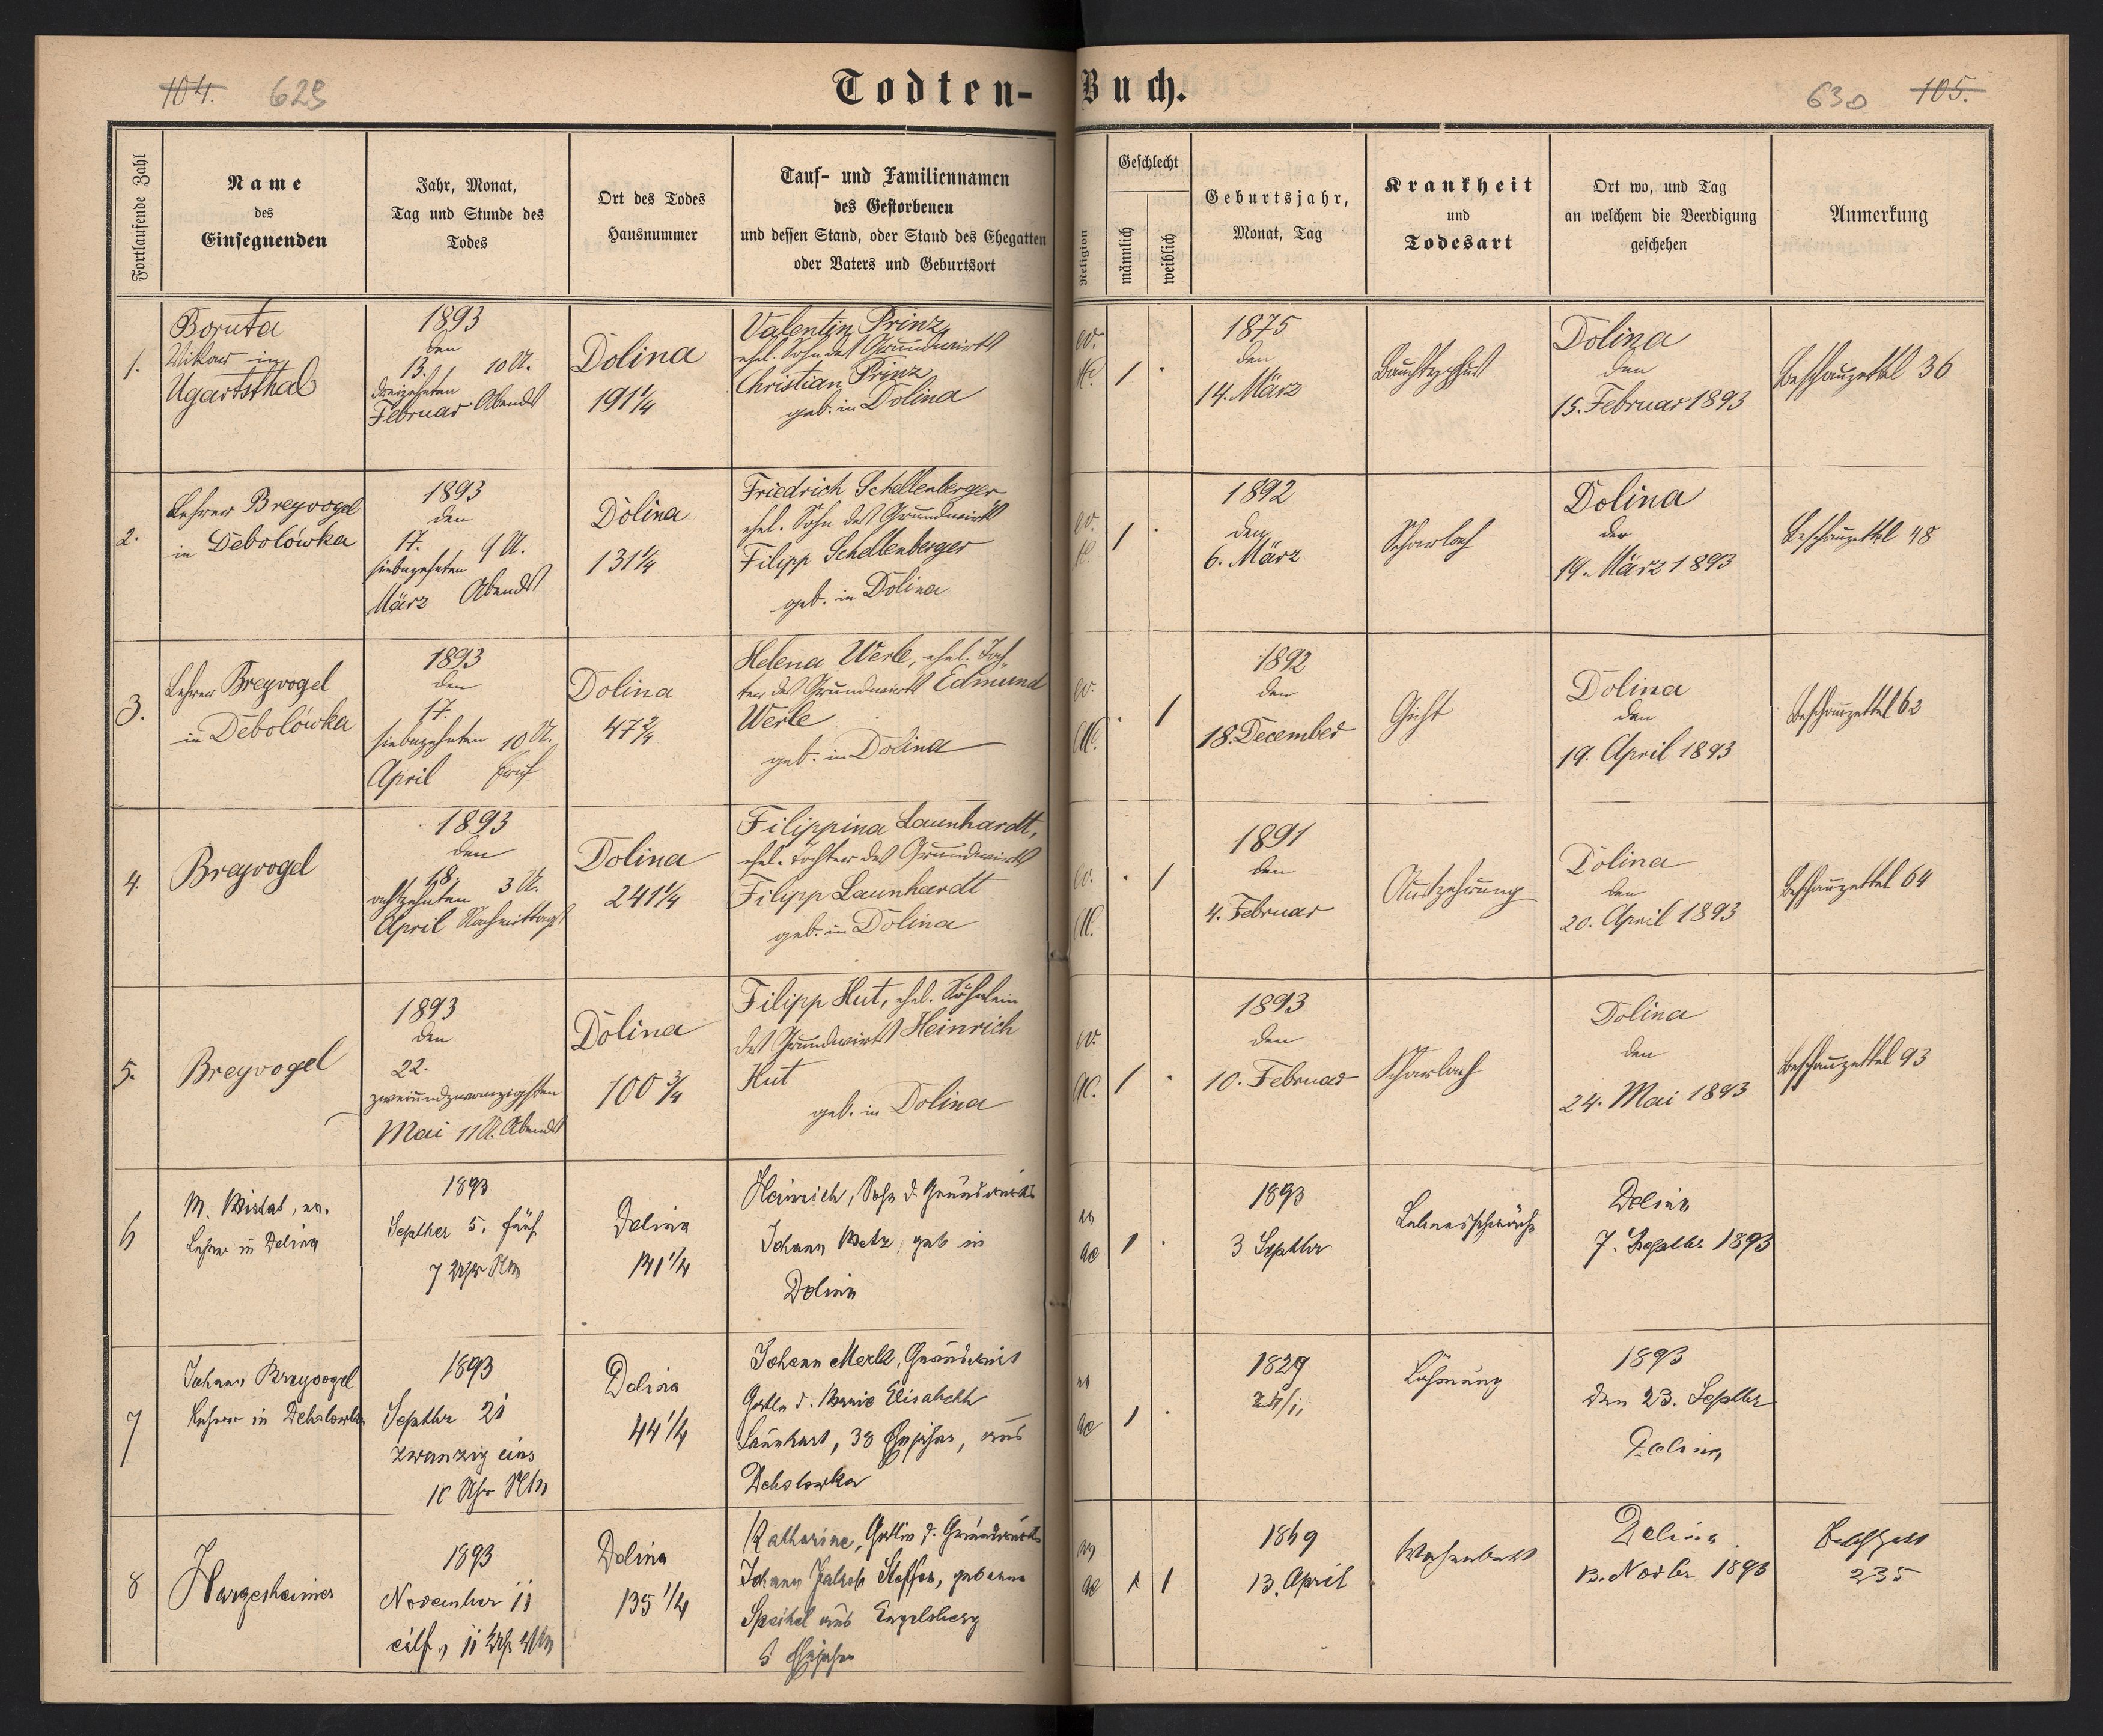 104. 629
Todten-Buch.
630 105.
Fortlaufende Zahl
Name
des
Einsegnenden
Jahr, Monat,
Tag und Stunde des
Todes
Ort des Todes
Hausnummer
Tauf- und Familiennamen
des Gestorbenen
und dessen Stand, oder Stand des Ehegatten
oder Vaters und Geburtsort
Religion
Geschlecht
männlich
weiblich
Geburtsjahr,
Monat, Tag
Krankheit
und
Todesart
Ort wo, und Tag
an welchem die Beerdigung
geschehen
Anmerkung
1.
Boruta
Vikar in
Ugartsthal
1893
den
13. 10 U.
dreizehnten
Februar Abends
Dolina
191 1/4
Valentin Prinz,
ehel. Sohn des Grundwirts
Christian Prinz
geb. in Dolina
ev.
1 .
1875
den
14. März
Dolina
den
15. Februar 1893
Beschauzettel 36
2.
Lehrer Breyvogel
in Debolówka
1893
den
17.
siebzehnten 9 U.
März Abends
Dolina
131 1/4
Friedrich Schellenberger
ehel. Sohn des Grundwirts
Filipp Schellenberger
geb. in Dolina
ev.
1 .
1892
den
6. März
Scharlach
Dolina
den
19. März 1893
Beschauzettel 48
3.
Lehrer Breyvogel
in Debolówka
1893
den
17.
siebzehnten 10 U.
April früh
Dolina
47 2/4
Helena Werle, ehel. Toch-
ter des Grundwirts Edmund
Werle
geb. in Dolina
ev.
. 1
1892
den
18. December
Gicht
Dolina
den
19. April 1893
Beschauzettel 62
4.
Breyvogel
1893
den
18.
achtzehnten 3 U.
April Nachmittags
Dolina
241 1/4
Filippina Launhardt,
ehel. Tochter des Grundwirts
Filipp Launhardt
geb. in Dolina
ev.
. 1
1891
den
4. Februar
Auszehrung
Dolina
den
20. April 1893
Beschauzettel 64
5.
Breyvogel
1893
den
22.
zweiundzwanzigsten
Mai 11 U. Abends
Dolina
100 3/4
Filipp Hut, ehel. Söhnlein
des Grundwirts Heinrich
Hut
geb. in Dolina
ev.
1 .
1893
den
10. Februar
Scharlach
Dolina
den
24. Mai 1893
Beschauzettel 93
6
Lehrer in Dolina
1893
Septber 5, fünf
7 Uhr
Dolina
141 1/4
Heinrich, Sohn d. Grundwirts
Johann Metz, geb in
Dolina
1 .
1893
3 Septbr
Lebensschwäche
Dolina
7. Septbr 1893
7
Johann Breyvogel
Lehrer in Debolowka
1893
Septbr 21
zwanzig eins
10 Uhr
Dolina
44 1/4
Johann Merk, Grundwirt
Gatte d. Marie Elisabeth
Launhart, 38 Ehejahre, aus
Debolowka
1 .
1829
Lähmung
1893
den 23. Septber
Dolina
8
Hargesheimer
1893
November 11
eilf, 11 Uhr
Dolina
135 1/4
Katharine, Gattin d. Grundwirts
Johann Jakob Steffer, geborne
Speitel aus Engelsberg
Ehejahre
1
1869
13. April
Wochenbett
Dolina
13. Novbr 1893
235